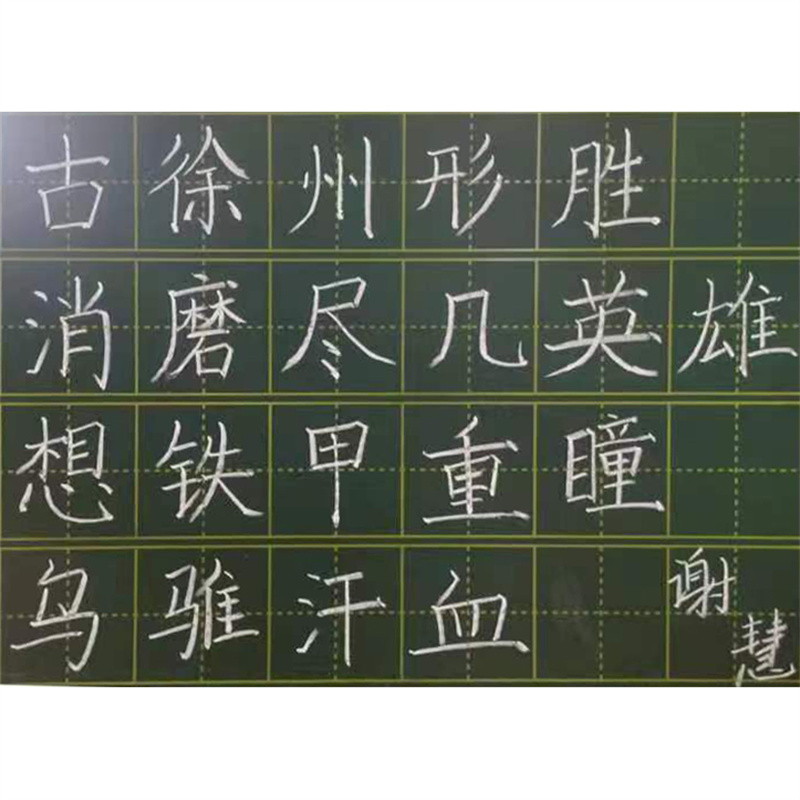 古徐州形胜
消磨尽几英雄
想铁甲重瞳
乌骓汗血
谢慧